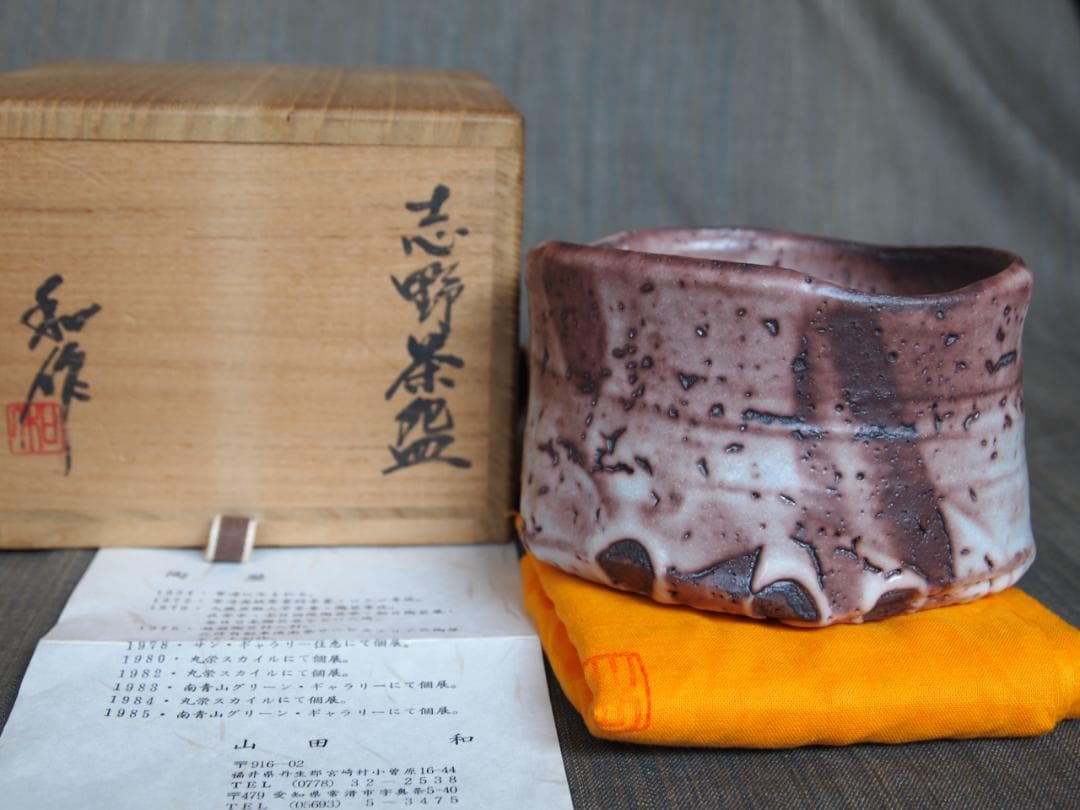 志野茶盌
和作
陶歴
1978・サン・ギャラリー住恵にて個展。
1980・丸栄スカイルにて個展。
1982・丸栄スカイルにて個展。
1983・南青山グリーン・ギャラリーにて個展。
1984・丸栄スカイルにて個展。
1985・南青山グリーン・ギャラリーにて個展。
山田 和
〒916-02
福井県丹生郡宮崎村小曽原16-44
TEL (0778) 32-2538
〒479 愛知県常滑市字奥条5-40
TEL (05693) 5-3475